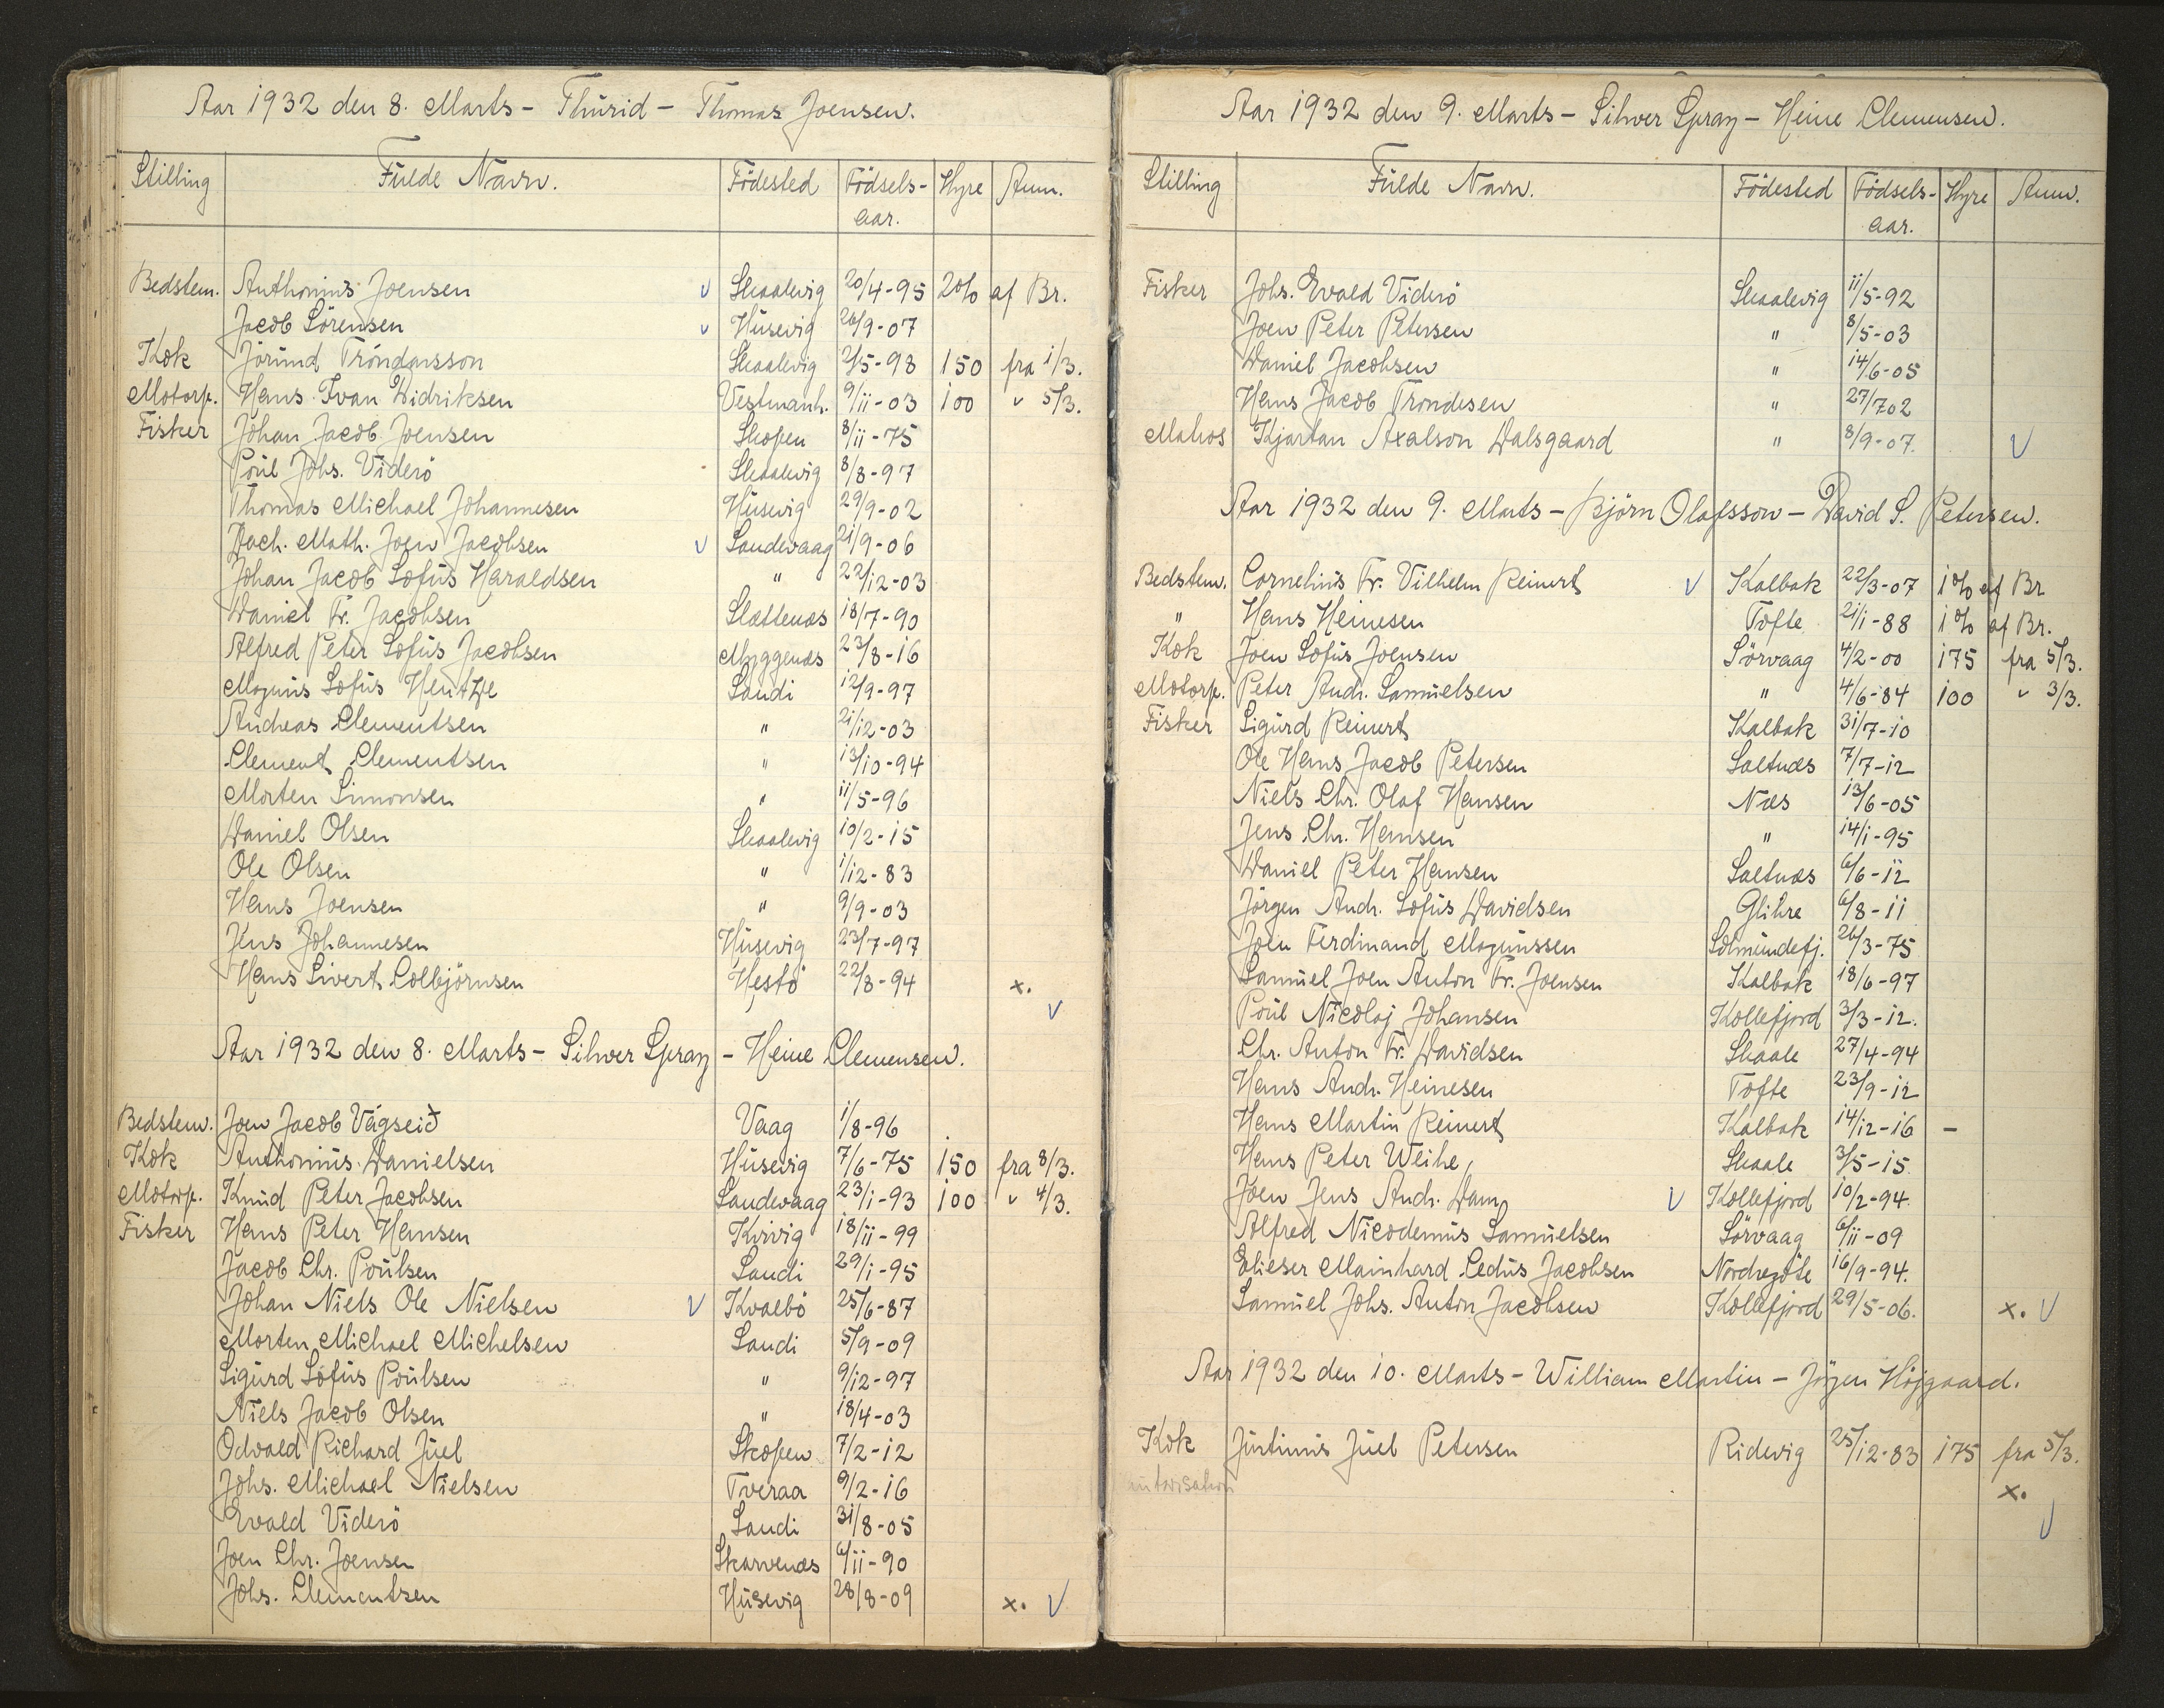 Aar 1932 den 8. Marts - Thúrid - Thomas Joensen.
Stilling Fúlde Navn. Födested Födsels-aar. Hyre Anm.
Bedstem. Anthoniús Joensen v Skaalevig 20/4-95 2% af Br.
Jacob Sörensen v Húsevig 26/9-07
Kok Jörúnd Tróndarsson Skaalevig 2/5-98 150 fra 1/3.
Motorp. Hans Ivan Didriksen Vestmanh. 9/11-03 100 " 5/3.
Fisker Johan Jacob Joensen Skopen 8/11-75
Poúl Johs. Viderö Skaalevig 8/8-97
Thomas Michael Johannesen Húsevig 29/9-02
Zach. Math. Joen Jacobsen v Sandevaag 21/9-06
Johan Jacob Sofús Haraldsen " 22/12-03
Daniel Fr. Jacobsen Slættenæs 18/7-90
Alfred Peter Sofús Jacobsen Myggenæs 23/8-16
Magnús Sofús Hentze Sandi 12/9-97
Andreas Clementsen " 21/12-03
Clement Clementsen " 13/10-94
Morten Simonsen " 11/5-96
Daniel Olsen Skaalevig 10/2-15
Ole Olsen " 1/12-83
Hans Joensen " 9/9-03
Jens Johannesen Húsevig 23/7-97
Hans Sivert Colbjörnsen Hestö 22/8-94 x. v
Aar 1932 den 8. Marts - Silver Spray - Heine Clemensen.
Bedstem. Joen Jacob Vágseið Vaag 1/8-96
Kok Anthoniús Danielsen Húsevig 7/6-75 150 fra 8/3.
Motorp. Knúd Peter Jacobsen Sandevaag 23/1-93 100 " 4/3.
Fisker Hans Peter Hansen Kvivig 18/11-99
Jacob Chr. Poúlsen Sandi 29/1-95
Johan Niels Ole Nielsen v Kvalbö 25/6-87
Morten Michael Michelsen Sandi 5/9-09
Sigúrd Sofús Poúlsen " 9/12-97
Niels Jacob Olsen " 18/4-03
Odvald Richard Júel Skopen 7/2-12
Johs. Michael Nielsen Tveraa 9/2-16
Evald Viderö Sandi 31/8-05
Joen Chr. Joensen Skarvenæs 6/11-90
Johs. Clementsen Húsevig 28/8-09 x. v
Aar 1932 den 9. Marts - Silver Spray - Heine Clemensen.
Stilling Fúlde Navn. Födested Födsels-aar. Hyre Anm.
Fisker Johs. Evald Viderö Skaalevig 11/5-92
Joen Peter Petersen " 8/5-03
Daniel Jacobsen " 14/6-05
Hans Jacob Trondesen " 27/7 02
Matros Kjartan Axalson Dalsgaard " 8/9-07. v
Aar 1932 den 9. Marts - Björn Olafsson - David S. Petersen.
Bedstem. Corneliús Fr. Vilhelm Reinert v Kalbak 22/3-07 1% af Br
" Hans Heinesen Tofte 21/1-88 1% af Br.
Kok Joen Sofús Joensen Sörvaag 4/2-00 175 fra 5/3.
Motorp. Peter Andr. Samúelsen " 4/6-84 100 " 3/3.
Fisker Sigúrd Reinert Kalbak 31/7-10
Ole Hans Jacob Petersen Saltnæs 7/7-12
Niels Chr. Olaf Hansen Næs 13/6-05
Jens Chr. Hansen " 14/1-95
Daniel Peter Hansen Saltnæs 6/6-12
Jörgen Andr. Sofús Davidsen Glibre 6/8-11
Joen Ferdinand Magnússen Solmúndefj. 26/3-75
Samúel Joen Anton Fr. Joensen Kalbak 18/6-97
Poúl Nicolaj Johansen Kollefjord 3/3-12.
Chr. Anton Fr. Davidsen Skaale 27/4-94
Hans Andr. Heinesen Tofte 23/9-12
Hans Martin Reinert Kalbak 14/12-16 -
Hans Peter Weihe Skaale 3/5-15
Joen Jens Andr. Dam v Kollefjord 10/2-94.
Alfred Nicodemús Samúelsen Sörvaag 6/11-09
Elieser Mainhard Ledús Jacobsen Nordregöte 16/9-94.
Samúel Johs. Anton Jacobsen Kollefjord 29/5-06. x. v
Aar 1932 den 10. Marts - William Martin - Jörgen Höjgaard.
Kok Jústinús Júel Petersen Ridevig 25/12-83 175 fra 5/3.
x.
v